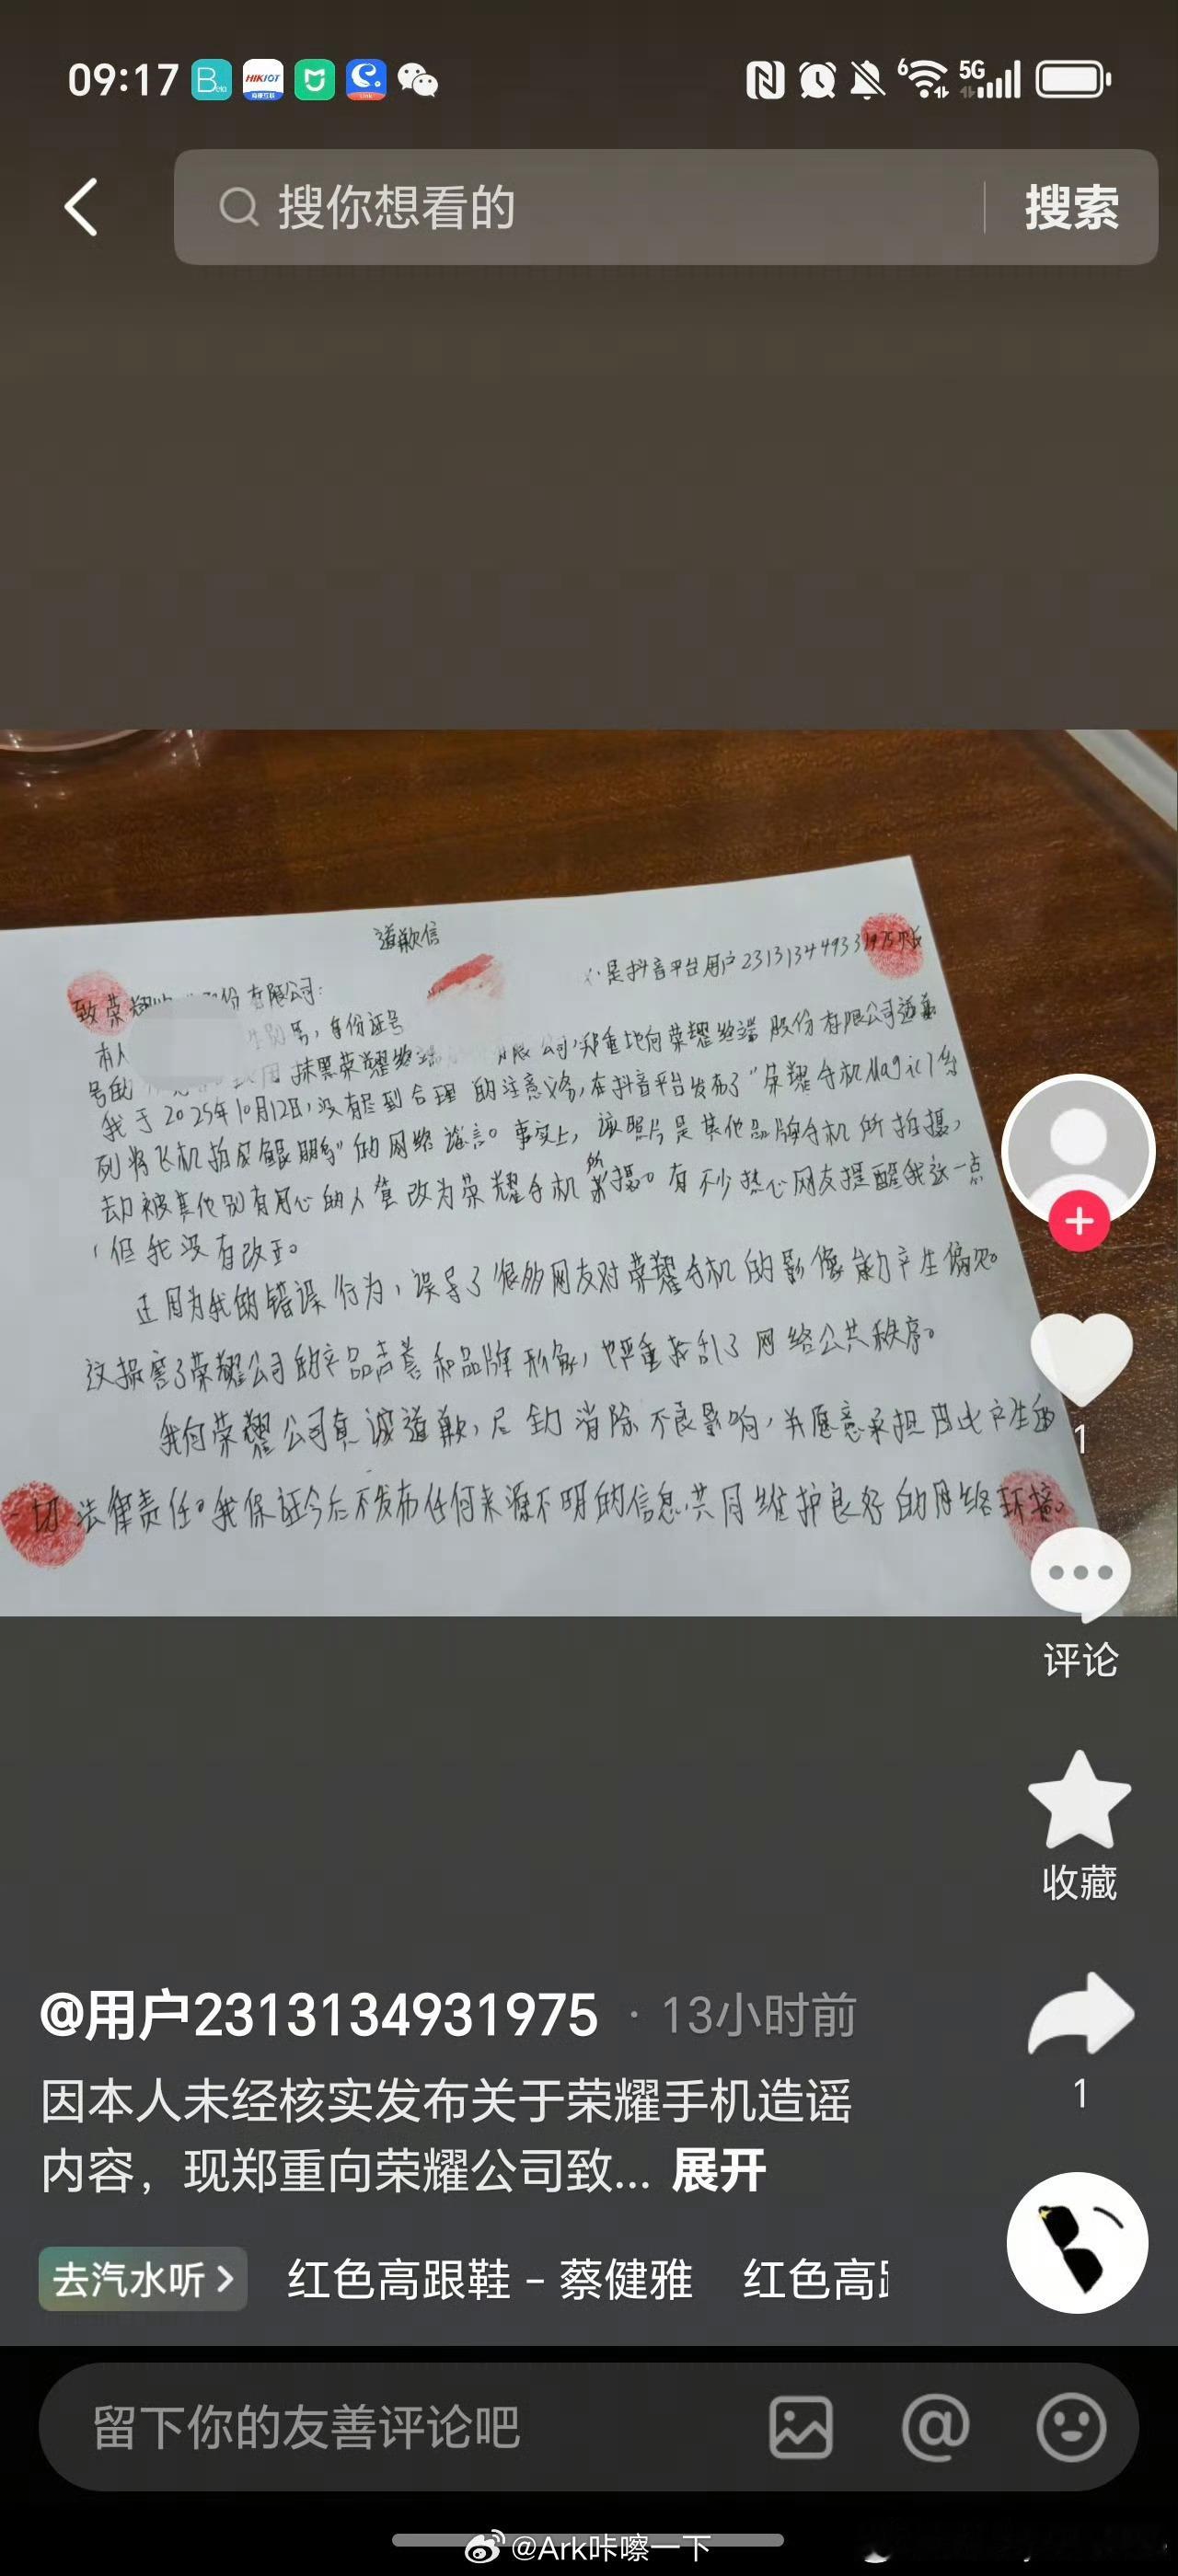 09:17
5G
搜你想看的
搜索
道歉信
致荣耀 份有限公司:
是抖音平台用户23131344933
本人 性别男,身份证号
号的 抹黑荣耀终端 有限公司,郑重地向荣耀终端股份有限公司道歉
我于2025年10月12日,没有尽到合理的注意义务,在抖音平台发布了"荣耀手机Magic
列将飞机拍成鲲鹏"的网络谣言。事实上,该照片是其他品牌手机所拍摄,
却被其他别有用心的人篡改为荣耀手机所摄。有不少热心网友提醒我这一点
,但我没有改正。
正因为我的错误行为,误导了很多网友对荣耀手机的影像能力产生偏见。
这损害了荣耀公司的产品声誉和品牌形象,也严重扰乱了网络公共秩序。
我向荣耀公司真诚道歉,尽力消除不良影响,并愿意承担因此产生的
一切法律责任。我保证今后不发布任何来源不明的信息,共同维护良好的网络环境。
1
评论
收藏
1
@用户2313134931975 · 13小时前
因本人未经核实发布关于荣耀手机造谣
内容，现郑重向荣耀公司致... 展开
去汽水听 >
红色高跟鞋 - 蔡健雅 红色高
留下你的友善评论吧
@Ark咔嚓一下